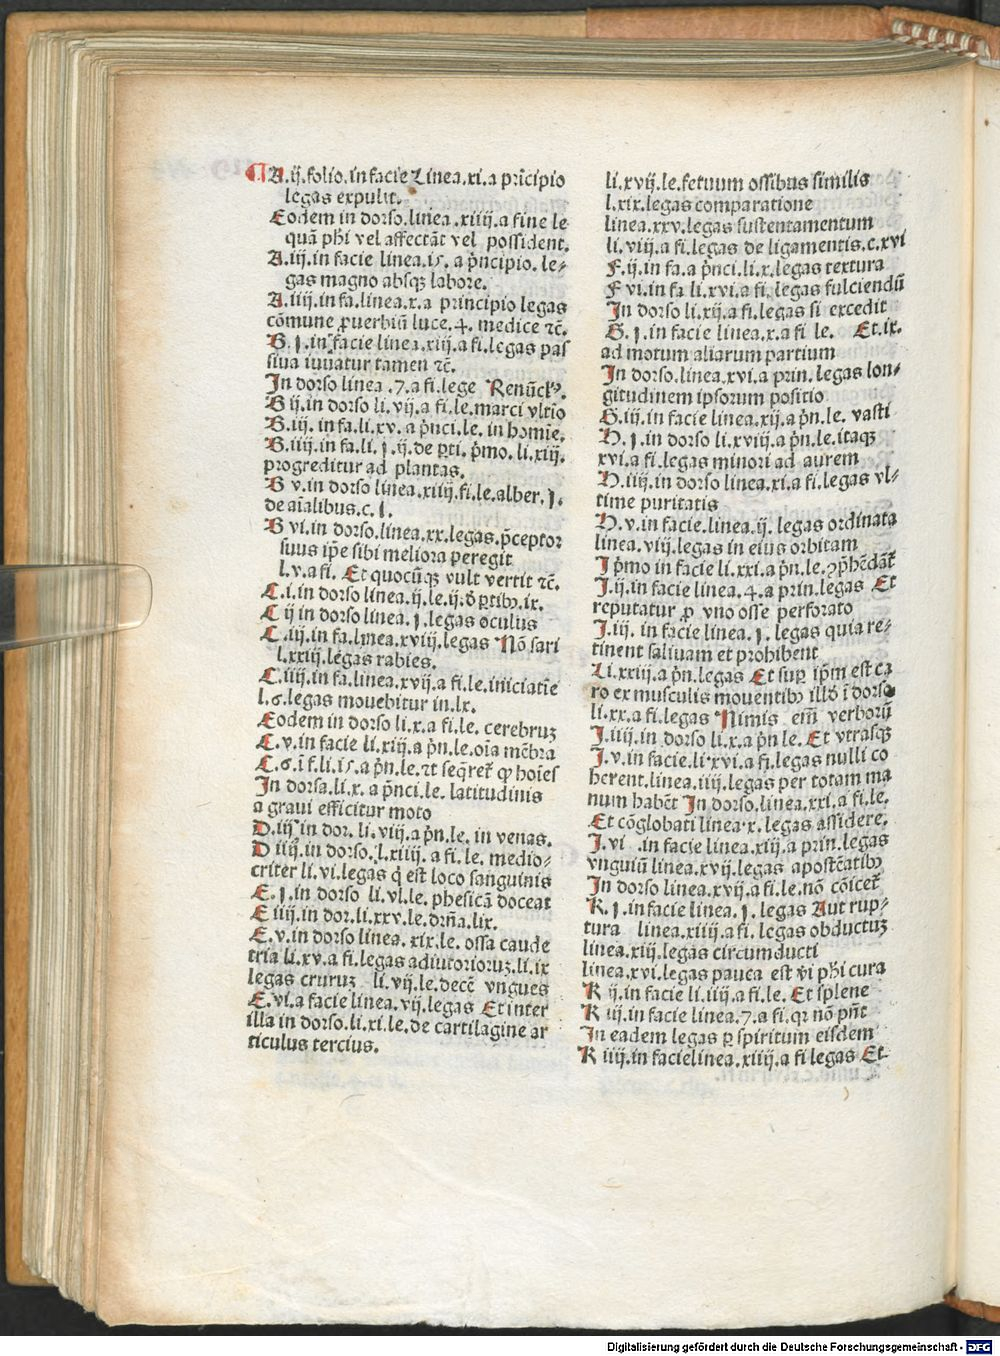 A.ij.folio.in facie Linea.xi.a prīcipio
legas expulit.
Eodem in dorso.linea.xiiij.a fine le
quā phi vel affectāt vel possident.
A.iij.in facie linea.15.a p̄ncipio.le⸗
gas magno absqꝫ labore.
A.iiij.in fa.linea.x.a principio legas
cōmune ꝓuerbiū luce.4. medice ⁊c̄.
B.j.in facie linea.xiij.a fi.legas pas
siua iuuatur tamen ⁊c̄.
In dorso linea.7.a fi.lege
B ij.in dorso li.vij.a fi.le.marci vltīo
B.iij.in fa.li.xv.a p̄nci.le.in homīe.
B.iiij.in fa.li.j.ij.de ꝑti.p̄mo.li.xiij.
progreditur ad plantas.
B v.in dorso linea.xiiij.fi.le.alber.j.
de aīalibus.c.j.
B vi.in dorso.linea.xx.legas.p̄ceptor
suus ip̄e sibi meliora peregit
l.v.a fi. Et quocūqꝫ vult vertit ⁊c̄.
C.i.in dorso linea.ij.le.ij.ꝺ̄ ꝑtibꝰ.ix.
C ij in dorso linea.j.legas oculus
C.iij.in fa.linea.xviij.legas Nō sari
l.xxiij.legas rabies.
C.iiij.in fa.linea.xvij.a fi.le.iniciatīe
l.6.legas mouebitur in.lx.
Eodem in dorso li.x.a fi.le. cerebruꝫ
C.v.in facie li.xiij.a p̄n.le.oīa mēbra
C.6.ī f.li.15.a p̄n.le.⁊t seq̄ret̄ ꝙ hoīes
In dorsa.li.x.a p̄nci.le. latitudinis
a graui efficitur moto
D.iij in dor.li.viij.a p̄n.le. in venas.
D iiij.in dorso.l.xiiij.a fi.le. medio⸗
criter li.vi.legas q̄ est loco sanguinis
E.j.in dorso li.vl.le. phesicā doceat
E iiij.in dor.li.xxv.le.dr̄ña.lix.
E.v.in dorso linea.xix.le. ossa caude
tria li.xv.a fi.legas adiutorioruꝫ.li.ix
legas cruruꝫ li.vij.le.decē vngues
E.vi.a facie linea.vij.legas Et inter
illa in dorso.li.xi.le.de cartilagine ar
ticulus tercius.
li.xvij.le.fetuum ossibus similis
l.xix.legas comparatione
linea.xxv.legas sustentamentum
li.viij.a fi.legas de ligamentis.c.xvi
F.ij.in fa.a p̄nci.li.x.legas textura
F vi.in fa li.xvi.a fi.legas fulciendū
In dorso li.xij.a fi.legas si excedit
G.j.in facie linea.x.a fi le. Et.ix.
ad motum aliarum partium
In dorso.linea.xvi.a prin.legas lon⸗
gitudinem ipsorum positio
G.iij.in facie linea.xij.a p̄n.le. vasti
H.j.in dorso li.xviij.a p̄n.le.itaqꝫ
xvi.a fi.legas minori ad aurem
H.iiij.in dorso linea.xi.a fi.legas vl⸗
time puritatis
H.v.in facie.linea.ij.legas ordinata
linea.viij.legas in eius orbitam
I p̄mo in facie li.xxi.a p̄n.le.ꝯp̄hēdāt̄
I.ij.in facie linea.4.a prin.legas Et
reputatur ꝓ vno osse perforato
I.iij. in facie linea.j.legas quia re⸗
tinent saliuam et prohibent
Li.xxiij.a p̄n.legas Et suꝑ ip̄m est ca
ro ex musculis mouentibꝰ illō ī dorso
li.xx.a fi.legas Nimis em̄ verborū
I.iiij.in dorso li.x.a p̄n le. Et vtrasqꝫ
I.v.in facie.li.xvi.a fi.legas nulli co
herent.linea.iiij.legas per totam ma
num habēt In dorso.linea.xxi.a fi.le.
Et cōglobati linea.x.legas assidere.
I.vi .in facie linea.xiij.a prin.legas
vnguiū linea.xvij.legas apostēatibꝰ
In dorso linea.xvij.a fi.le.nō cōicet̄
K.j.in facie linea.j.legas Aut rup⸗
tura linea.xiiij.a fi.legas obductuꝫ
linea.xiij.legas circumducti
linea.xvi.legas pauca est v̄i phi cura
K ij.in facie li.iiij.a fi.le. Et splene
K iij.in facie linea.7.a fi.qꝛ nō pn̄t
In eadem legas ꝑ spiritum eisdem
K iiij.in facielinea.xiiij.a fi legas Et
Digitalisierung gefördert durch die Deutsche Forschungsgemeinschaft - DFG